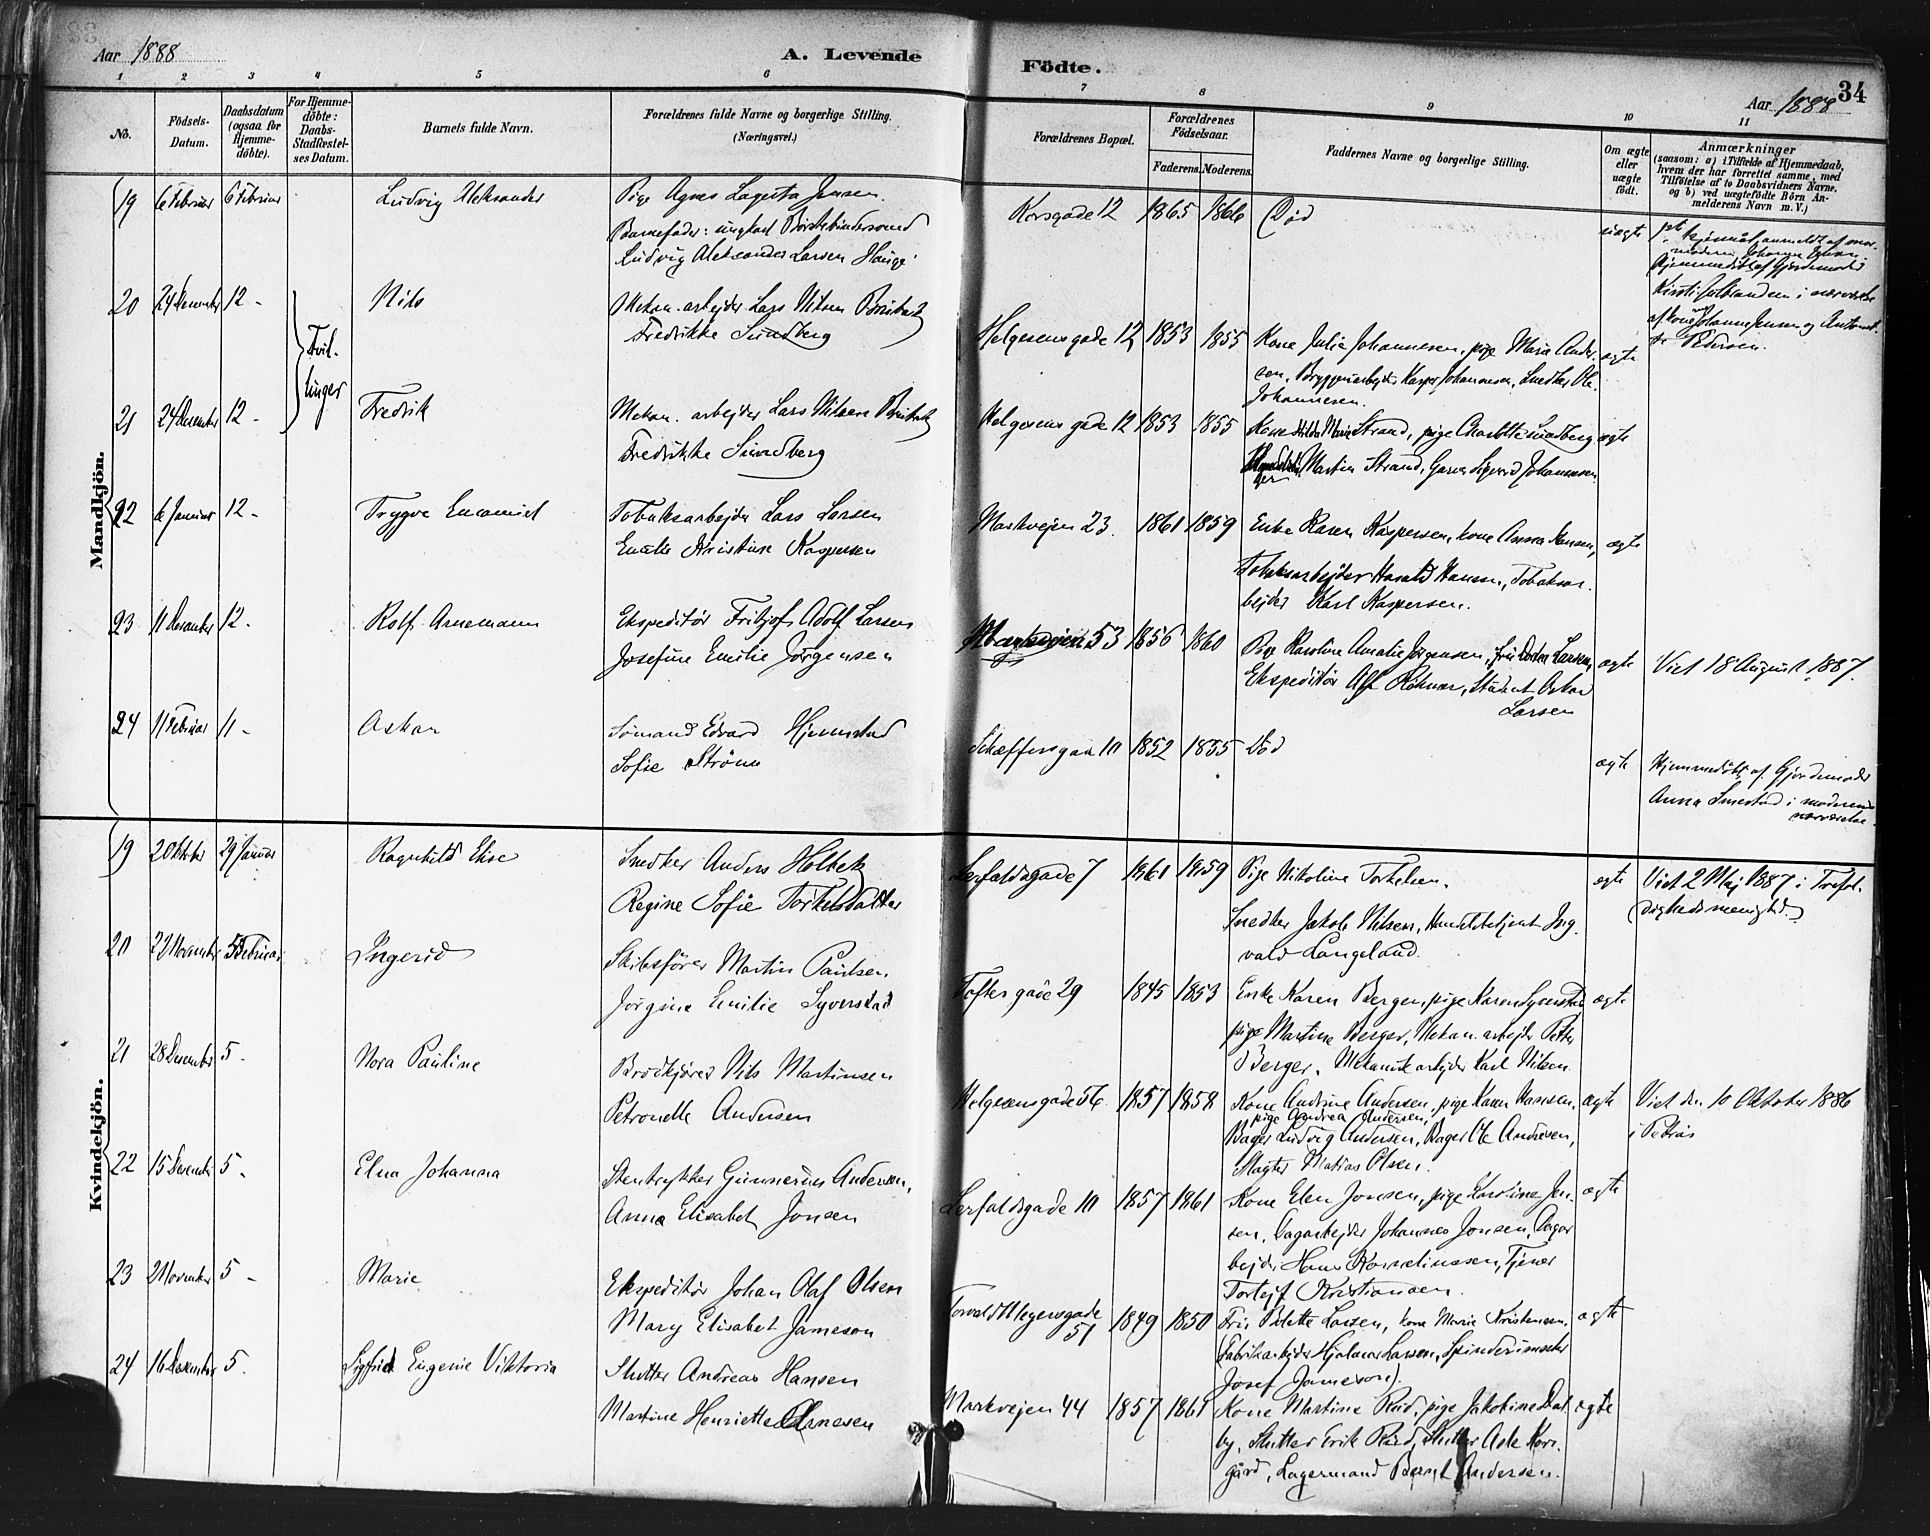 Aar 1888
A. Levende Födte.
34
Aar 1888
1 2 3 4 5 6 7 8 9 10 11
No.
Födsels-
Datum.
Daabsdatum
(ogsaa for
Hjemme-
döbte).
For Hjemme-
döbte:
Daabs-
Stadfæstel-
ses Datum.
Barnets fulde Navn.
Forældrenes fulde Navne og borgerlige Stilling.
(Næringsvei.)
Forældrenes Bopæl.
Forældrenes
Födselsaar.
Faderens. Moderens.
Faddernes Navne og borgerlige Stilling.
Om ægte
eller
uægte
födt.
Anmærkninger
(saasom: a) i Tilfælde af Hjemmedaab,
hvem der har forrettet samme, med
Tilföielse af to Daabsvidners Navne.
og b) ved uægtefödte Börn An-
melderens Navn m.V.)
Mandkjön.
19 6 Februar 6 Februar Ludvig Aleksander Pige Agnes Lagesta Jensen.
Barnefader: ungkarl Börstebindersvend
Ludvig Aleksander Larsen Hauge
Korsgade 12 1865 1866 Död uægte
Hjemmedöbt af Gjordemoder
Kirsti Gulbrandsen i nærværelse
af kone Johanne Jensen og
Pedersen.
20 24 Desember 12 - Tvil-
linger
Nils Mekan. arbejder Lars Nilsen
Fredrikke Sundberg
Helgesensgade 12 1853 1855 Kone Julie Johannesen, pige Marie Ander-
sen, Bryggeriarbejder Kasper Johannesen, Snedker Ole
Johannesen. ægte
21 24 Desember 12 - Fredrik Mekan. arbejder Lars Nilsen
Fredrikke Sundberg
Helgesens gade 12 1853 1855 Kone Hilda Marie Strand, pige Charlotte Sundberg ægte
Martin Strand, Garver Sigvard Johannesen
22 6 Januar 12 - Trygve Emanuel Tobaksarbejder Lars Larsen
Emelie Kristine Kaspersen
Markvejen 23. 1861 1859 Enke Karen Kaspersen, kone Anna Hansen, ægte
Tobaksarbejder Harald Hansen, Tobaksar-
bejder Karl Kaspersen.
23 11 Desember 12 - Rolf Arnemann Ekspeditör Fritjof Adolf Larsen
Josefine Emilie Jörgensen
Markvejen 53 1856 1860 Pige Karoline Amalie Jörgensen, frü Dorthea Larsen, ægte
Ekspeditör Alf Röhmer, Student Oskar
Larsen
Viet 18 August 1887.
24 11 Februar 11 - Oskar Sömand Edvard Hjemstad
Sofie Ström
Schæffersgade 10 1852 1855 Död ægte
Hjemmedöbt af Gjordemoder
Anna Smestad i moderens
nærværelse.
Kvindekjön.
19 2 Oktober 29 Januar Ragnhild Elise Snedker Anders Holbek
Regine Sofie Torkelsdatter
Lerfaldsgade 7 1861 1859 Pige Nikoline Torkelsen. ægte
Snedker Jakob Nilsen, Handelsbetjent Ing-
vald Langeland.
Viet 2 Maj 1887 i Trefol-
dighedsmenighed.
20 22 November 5 Februar Ingerid Skibsförer Martin Paulsen.
Jörgine Emilie Syverstad
Toftes gade 29 1845 1853 Enke Karen Berger, pige Karen Syverstad ægte
pige Martine Berger, Mekan. arbejder Petter
Berger, Mekanisk arbejder Karl Nilsen.
21 28 Desember 5 - Nora Pauline Brödkjörer Nils Martinsen
Petronelle Andersen
Helgesensgade 56 1857 1858 Kone Andrine Andersen, pige Karen Hansen, ægte
pige Andrea Andersen,
Bager Ludvig Andersen, Bager Ole Andresen,
Slagter Matias Olsen.
Viet den 10 Oktober 1886
i Petrus
22 15 Desember 5 - Elna Johanna Stentrykker Gunnerius Andersen,
Anna Elisabet Jonsen
Lerfaldsgade 10 1857 1861 Kone Elen Jonsen, pige Karoline Jen-
sen, Dagarbejder Johannes Jonsen, Dagar-
bejder Hans Kornelinssen, Tjener
Torlejf Kristiansen. ægte
23 2 November 5 - Marie Ekspeditör Johan Olaf Olsen
Mary Elisabet Jameson
Torvald Meyersgade
51 1849 1850 Frü Bolette Larsen, kone Marie Kristensen, ægte
Fabrikarbejder Hjalmar Larsen, Spinderimester
Josef Jameson.
24 16 Desember 5 - Sigfrid Eugenie Viktoria Slutter Andreas Hansen
Martine Henriette Arnesen
Markvejen 44 1857 1861 Kone Martine Rüd, pige Jakobine Dal-
by, Slutter Erik Rüd, Slutter Ask Kors-
gård, Lagermand Bernt Andersen. ægte